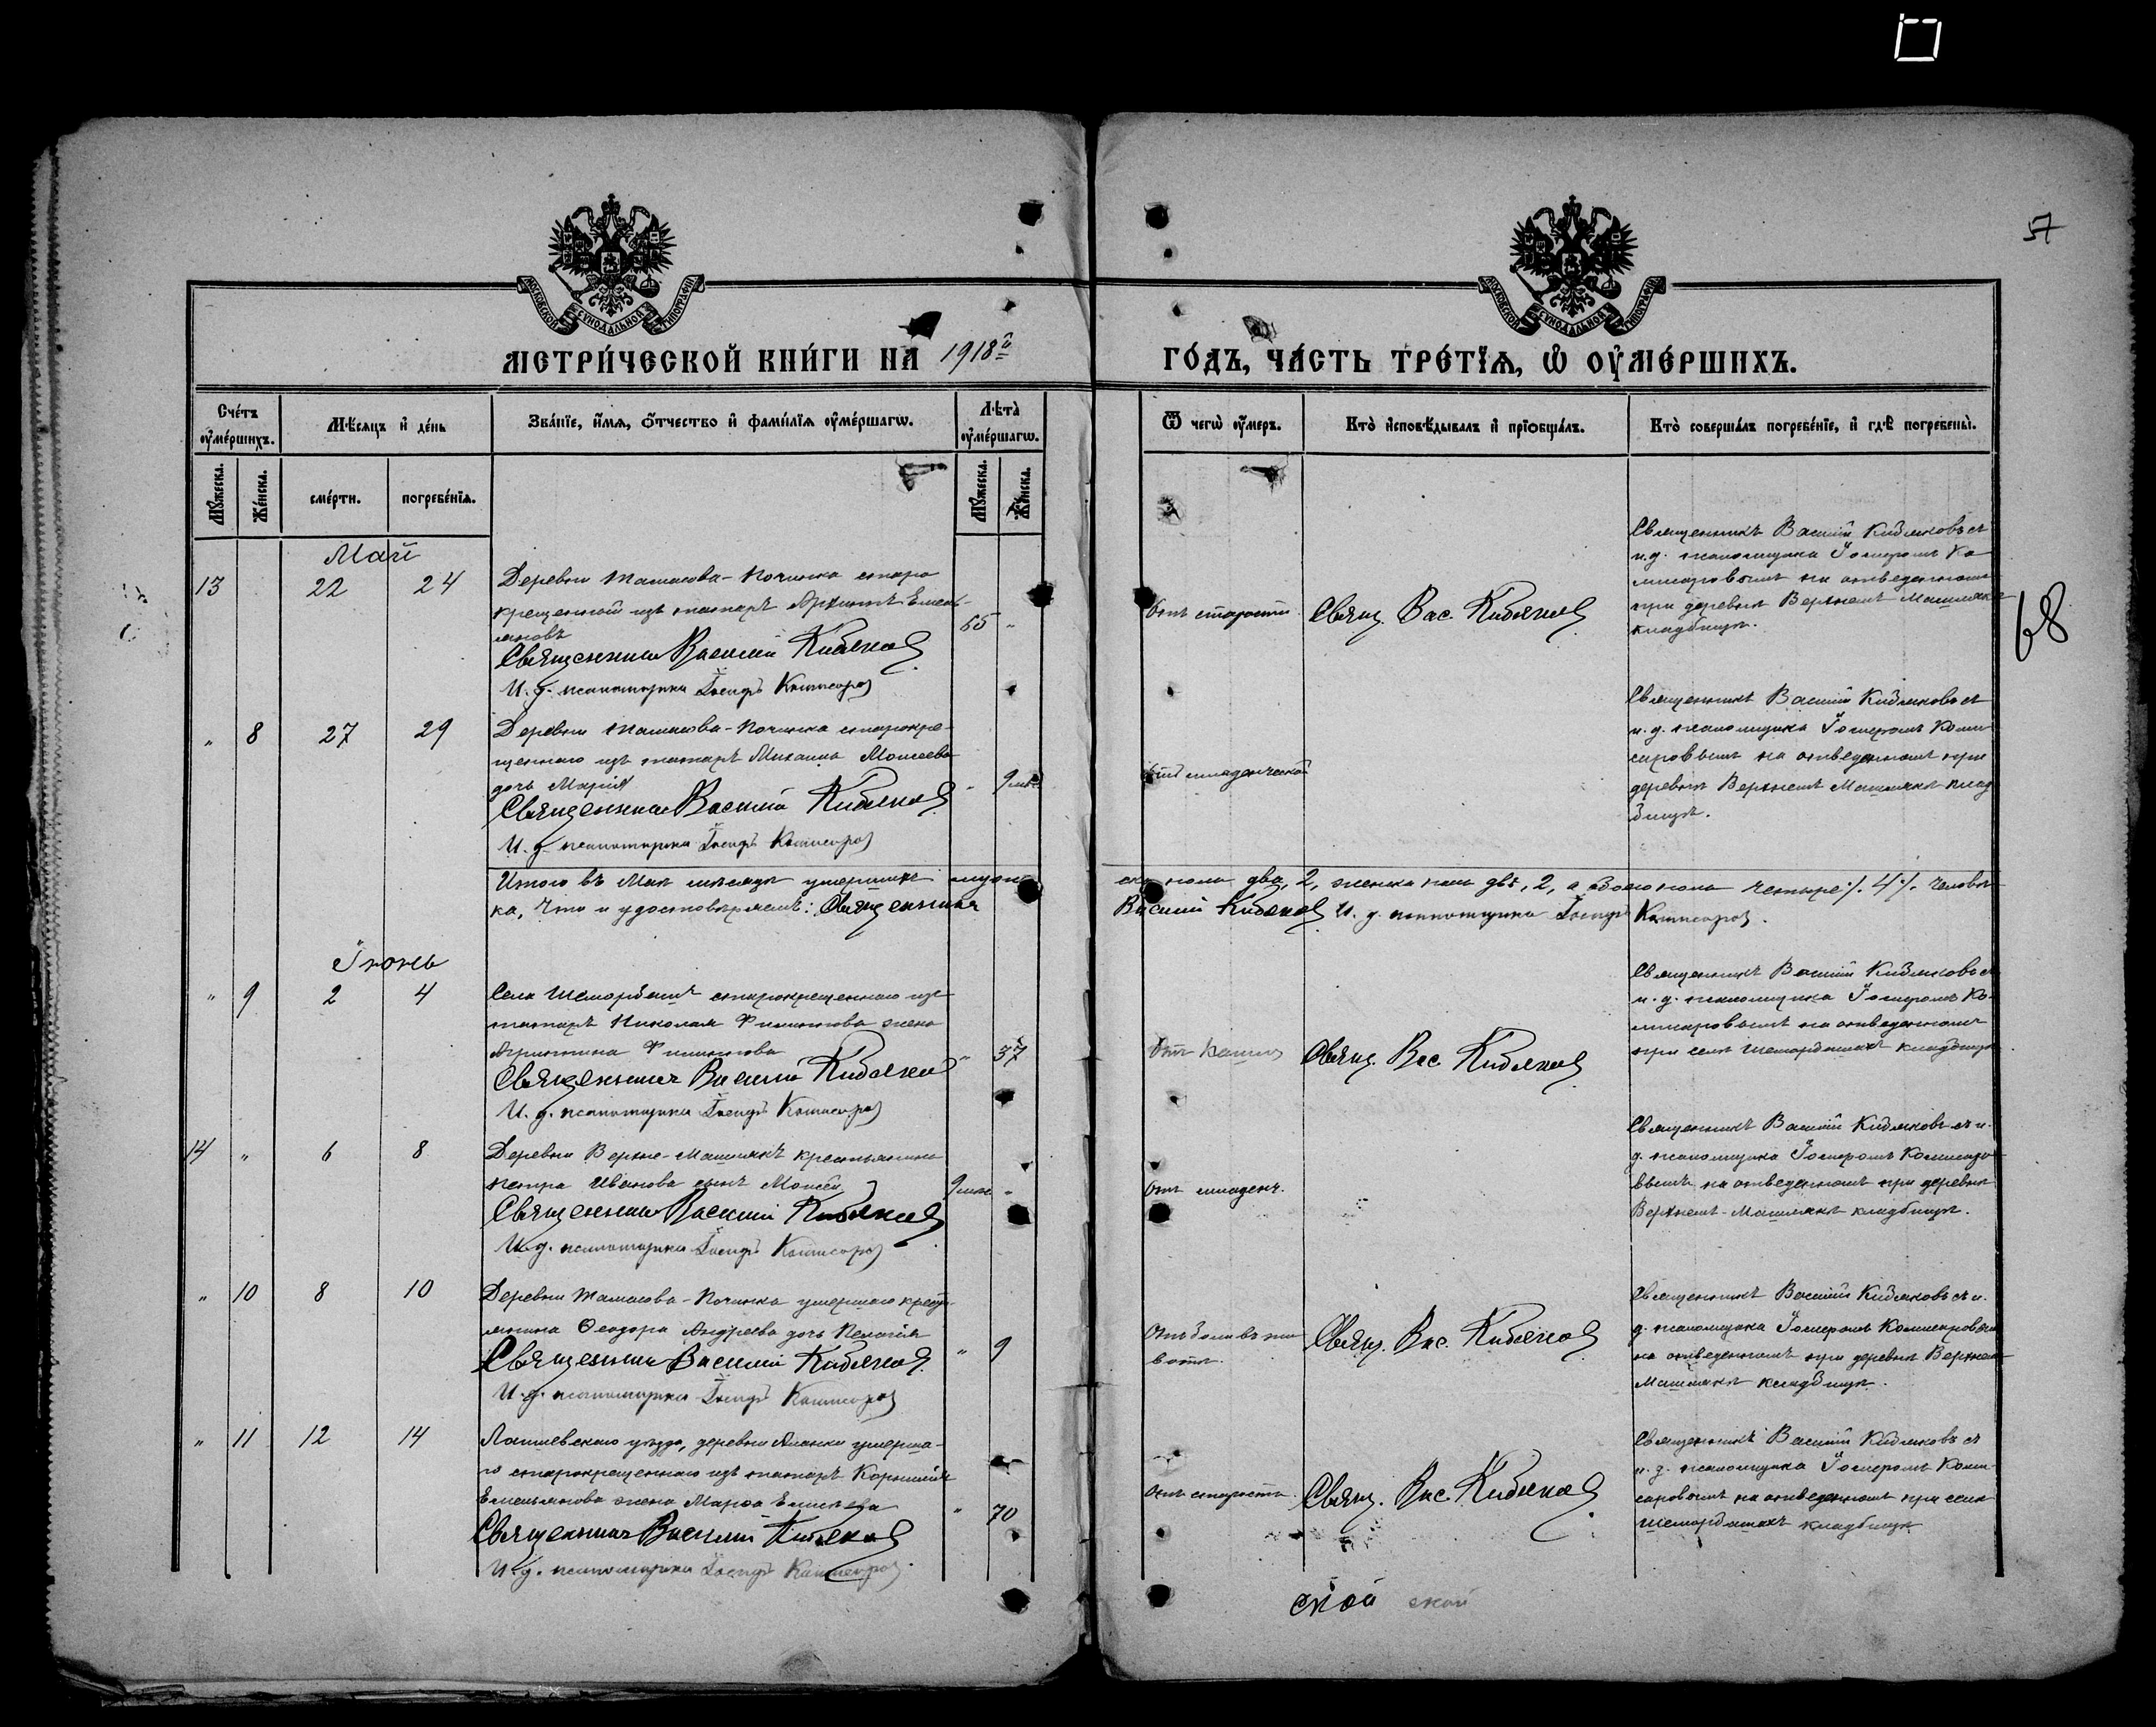 57
МОСКОВСКОЙ СѴНОДАЛЬНОЙ ТИПОГРАФІИ
МОСКОВСКОЙ СѴНОДАЛЬНОЙ ТИПОГРАФІИ
МЕТРИ́ЧЕСКОЙ КНИ́ГИ НА 1918й
ГО́ДЪ, ЧА́СТЬ ТРЕ́ТІѦ, Ѡ ОУ҆МЕ́РШИХЪ.
Сче́тъ оу҆ме́ршихъ.
Мѣ́сяцъ и҆ де́нь
Зва́нїе, и҆́мѧ, ѻ҆́тчество и҆ фами́лїѧ оу҆ме́ршагѡ.
Лѣ́та оу҆ме́ршагѡ.
Ѿ чегѡ̀ оу҆́меръ.
Кто̀ и҆сповѣ́дывалъ и҆ прїѻбща́лъ.
Кто̀ соверша́лъ погребе́нїе, и҆ гдѣ̀ погребены̀.
Мꙋ́жеска.
Же́нска.
сме́рти.
погребе́нїѧ.
Мꙋ́жеска.
Же́нска.
Май
13 22 24
Деревни Тамасова-Починка старо
крещенный изъ татаръ Архиппъ Емель-
яновъ
65 "
Священникъ Василій Кибяковъ
И. д. псаломщика Іосифъ Комисаровъ
Отъ старости
Свящ. Вас. Кибяковъ
Священникъ Василій Кибяковъ съ
и. д. псаломщика Іосифомъ Ко
мисаровымъ на отведенномъ
при деревнѣ Верхнемъ Машлякѣ
кладбищѣ.
68
" 8 27 29
Деревни Тамасова-Починка старокре-
щеннаго изъ татаръ Михаила Моисеева
дочь Марія
" 9 мѣс
Священникъ Василій Кибяковъ
И. д. псаломщика Іосифъ Комисаровъ
Отъ младенческой
Священникъ Василій Кибяковъ съ
и. д. псаломщика Іосифомъ Коми-
саровымъ на отведенномъ при
деревнѣ Верхнемъ Машлякѣ клад
бищѣ.
Итого въ Маѣ мѣсяцѣ умершихъ мужес
ска пола два, 2, женска пола двѣ, 2, а обоего пола четыре ·/. 4 ·/. человѣ-
ка, Что и удостовѣряемъ: Священникъ
Василій Кибяковъ И. д. псаломщика Іосифъ Комисаровъ.
Іюнь
" 9 2 4
Села Шеморбашъ старокрещеннаго изъ
татаръ Николая Филиппова жена
Агриппина Филиппова
" 37
Священникъ Василій Кибяковъ
И. д. псаломщика Іосифъ Комисаровъ
Отъ кашля
Свящ. Вас. Кибяковъ
Священникъ Василій Кибяковъ съ
и. д. псаломщика Іосифомъ Ко-
мисаровымъ на отведенномъ
при селѣ Шеморбашахъ кладбищѣ
14 " 6 8
Деревни Верхне-Машлякъ крестьянина
Петра Иванова сынъ Моисей
9 мѣс "
Священникъ Василій Кибяковъ
И. д. псаломщика Іосифъ Комисаровъ
Отъ младенч.
Священникъ Василій Кибяковъ съ и.
д. псаломщика Іосифомъ Комисаро
вымъ на отведенномъ при деревнѣ
Верхнемъ-Машлякѣ кладбищѣ.
" 10 8 10
Деревни Тамасова-Починка умершаго кресть-
янина Ѳеодора Андреева дочь Пелагія
" 9
Священникъ Василій Кибяковъ
И. д. псаломщика Іосифъ Комисаровъ
Отъ боли въ жи
вотѣ.
Свящ. Вас. Кибяковъ
Священникъ Василій Кибяковъ съ и.
д. псаломщика Іосифомъ Комисаровым
на отведенномъ при деревнѣ Верхнемъ
Машлякѣ кладбищѣ.
" 11 12 14
Лаишевскаго уѣзда, деревни Янцы умерша-
го старокрещеннаго изъ татаръ Корнилія
Емельянова жена Марѳа
" 70
Священникъ Василій Кибяковъ
И. д. псаломщика Іосифъ Комисаровъ.
Отъ старости
Свящ. Вас. Кибяковъ
Священникъ Василій Кибяковъ съ
и. д. псаломщика Іосифомъ Коми-
саровымъ на отведенномъ при селѣ
Шеморбашахъ кладбищѣ
ской ской